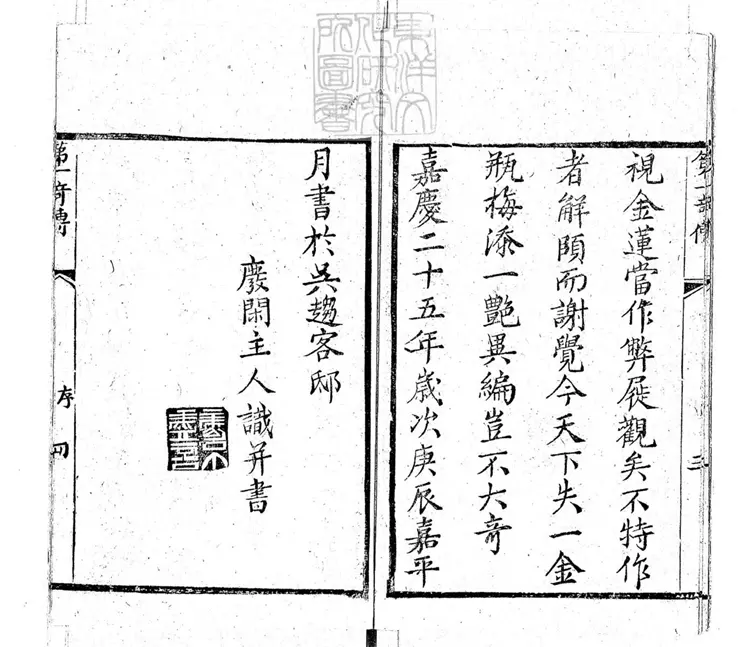 東洋文
化研究
所圖書
視金蓮當作弊屣觀矣不特作
者解頤而謝覺今天下失一金
瓶梅添一艷異編豈不大奇
嘉慶二十五年歲次庚辰嘉平
月書於吳趨客邸
廢閑主人識并書
第一奇傳
序
三
第一奇傳
序
四